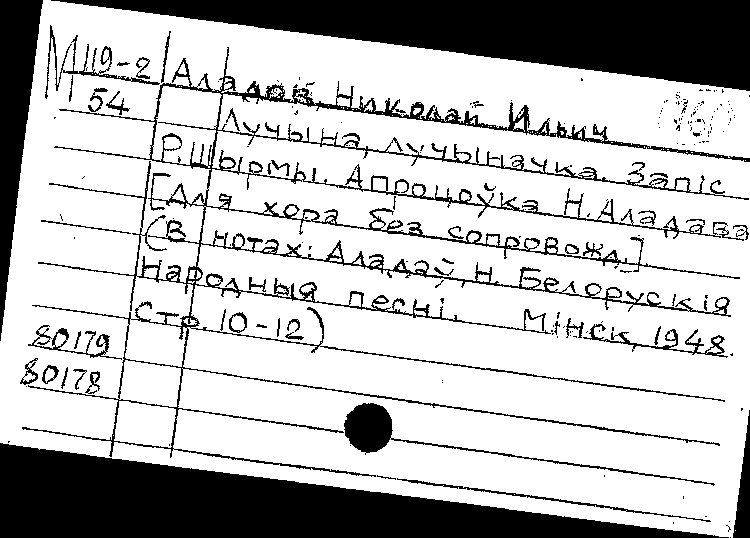 М 119-2 Аладов, Николай Ильич
54 Лучына, лучыначка. Запіс
Р. Шырмы. Апрацоўка Н. Аладава
[Для хора без сопровожд.]
(В нотах: Аладаў, Н. Белорускія
народныя песні. Мінск, 1948.
Стр. 10-12)
80179
80178